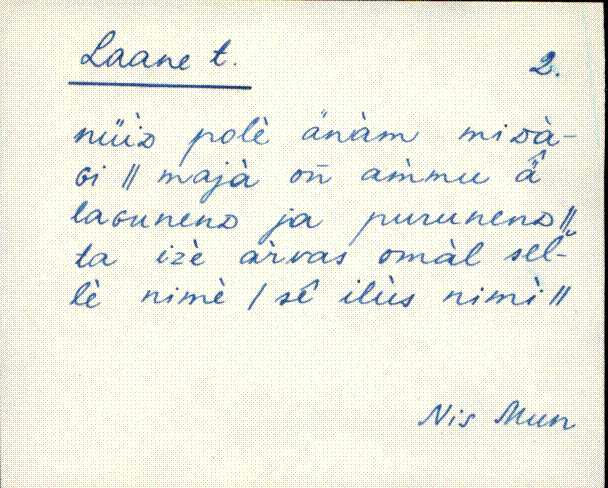 Laane t.
2.
nüiᴅ̀ polè änàm miᴅà-
ɢi // majà on̄ am̀mu ä̂
laɢunenᴅ ja purunenᴅ //
ta izè àrvas omàl sel̆-
lè nimè / sê ilùs nimì //
Nis Mun